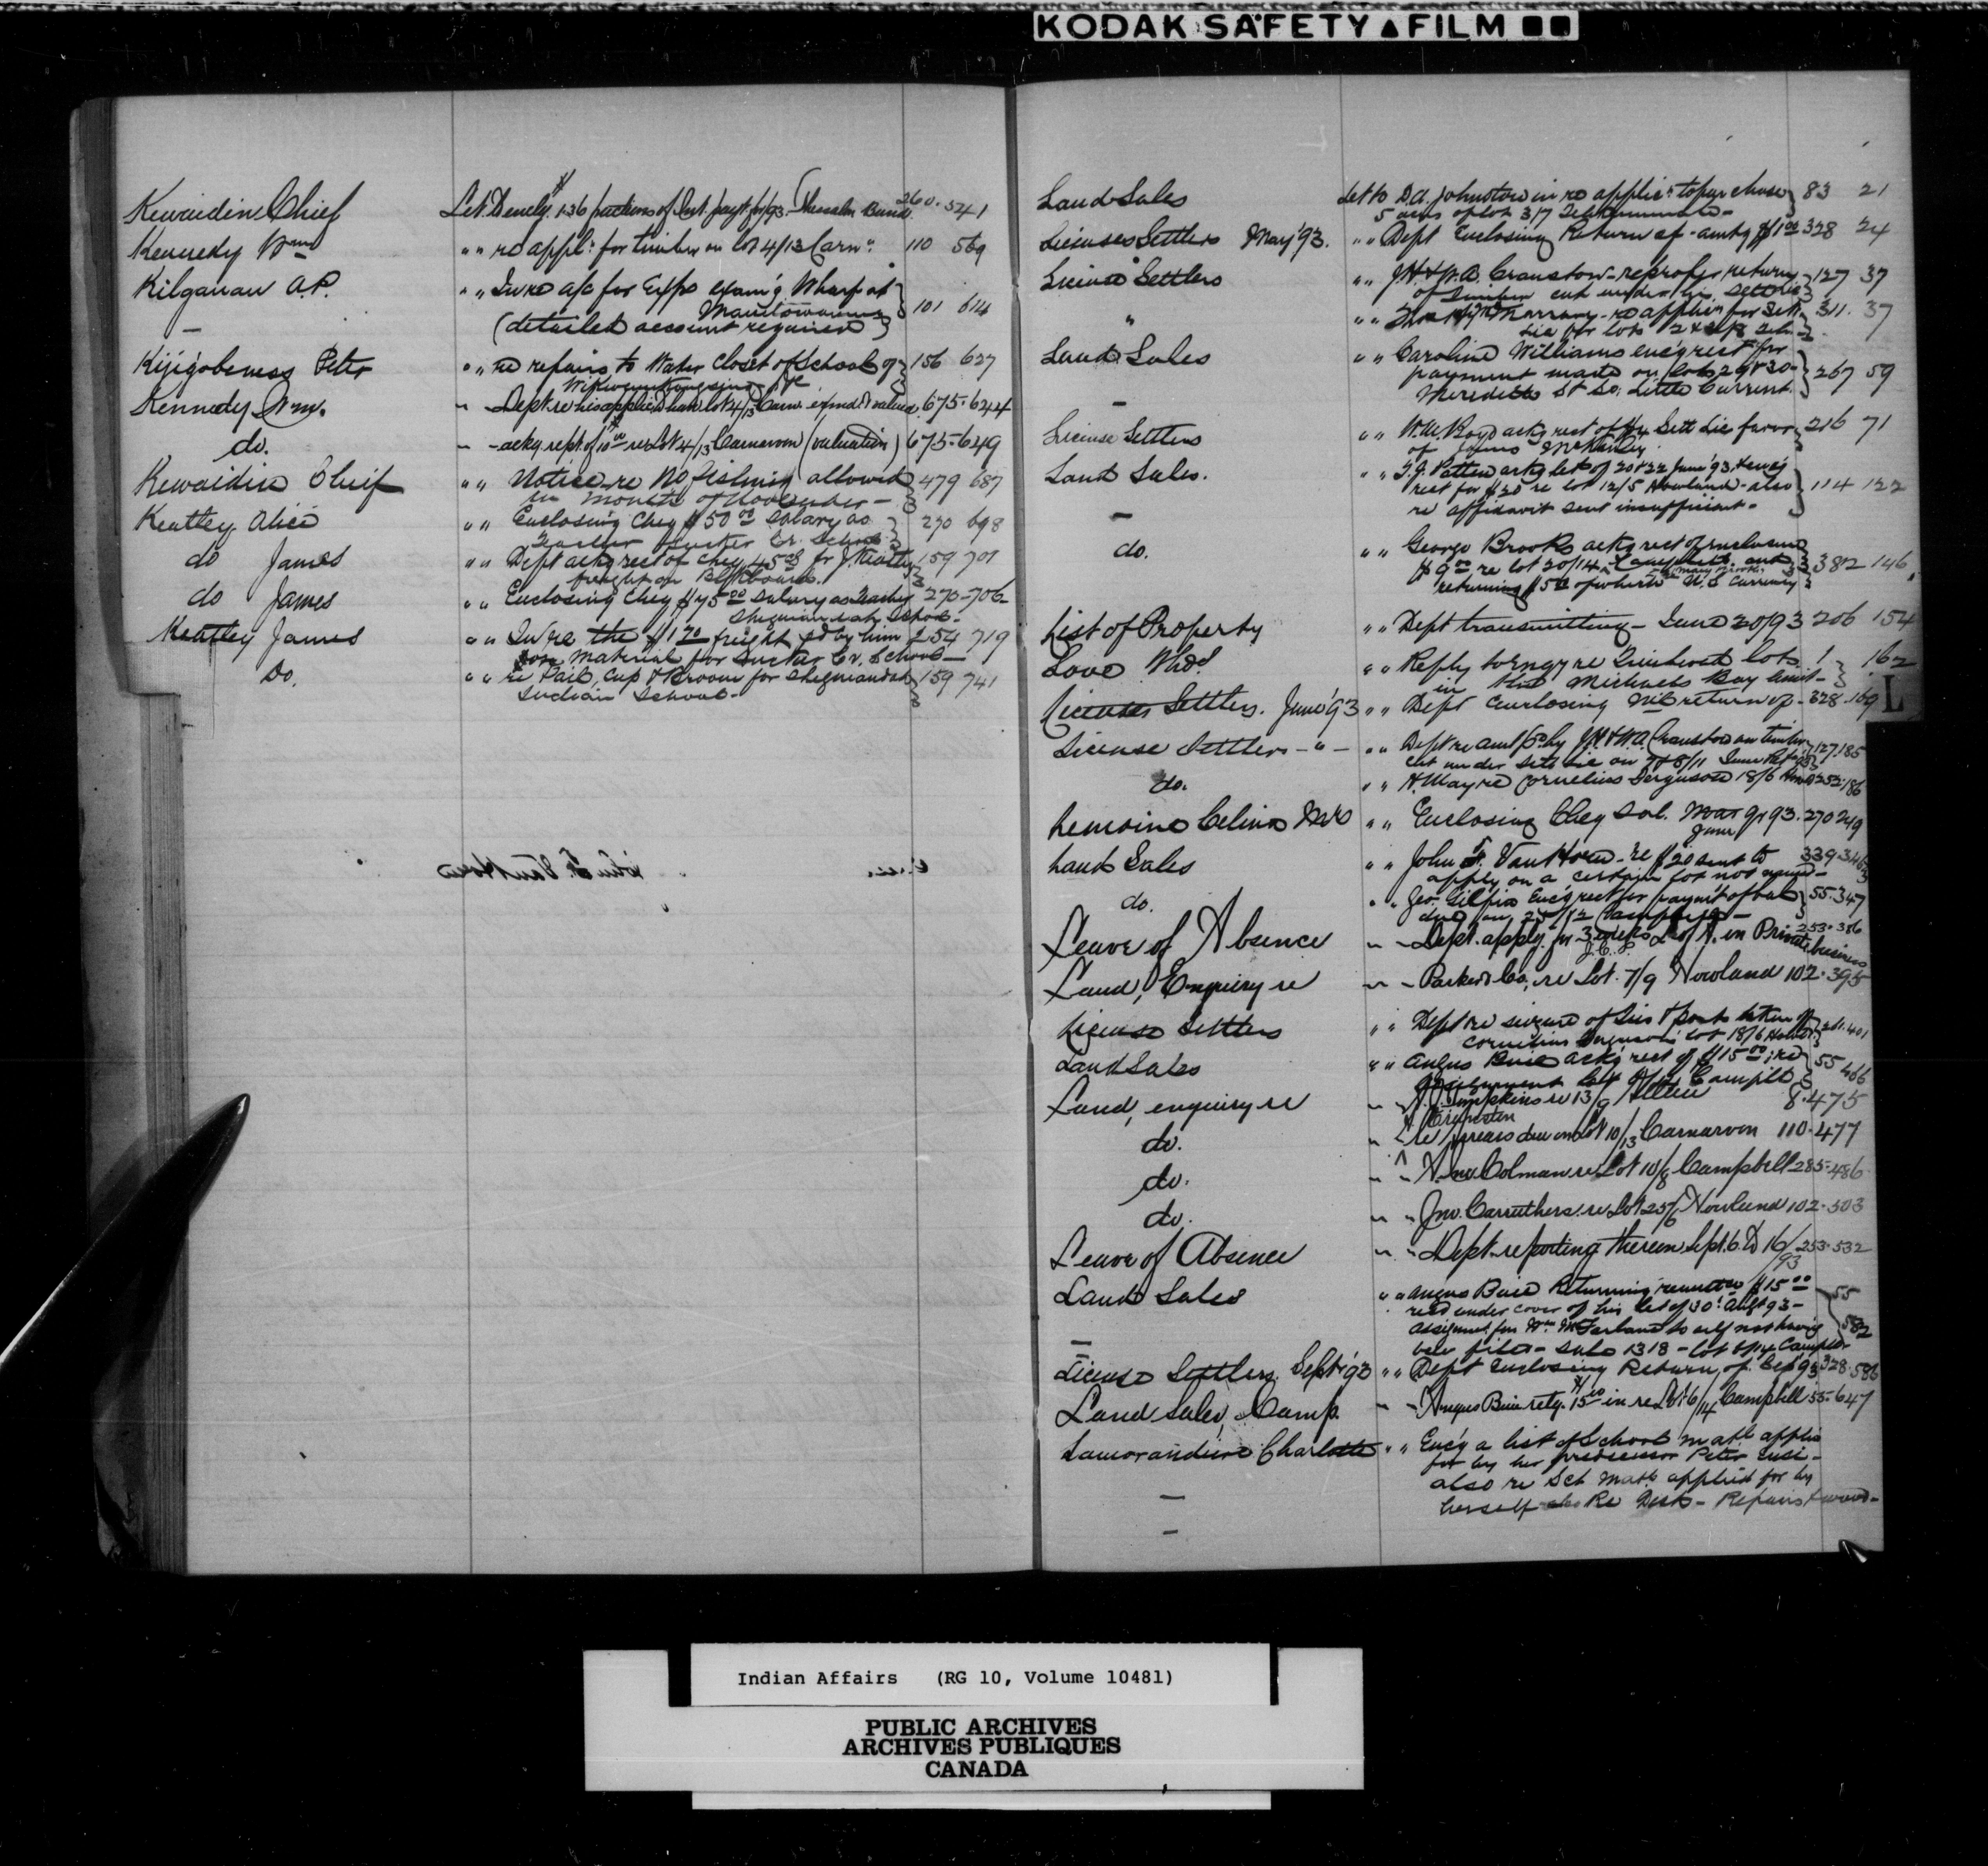 KODAK SAFETY FILM
Kewaidin Chief Let. Dencly. 136 of Int. payt. for /93. Band 260. 541
Kennedy Wm " " re appln for timber on lot 4/13 Carn. 110 569
Kilganan A.P. " " In re a/c for Exps exam'g Wharf at
Manitowaning 101 614
(detailed account required)
Kijigobeness Peter " " re repairs to Water Closet of School of 156 627
&c
Kennedy Wm. " - Dept. re his applicn lot 4/13 Carn. valued. 675-644
do. " - ackg. rept. of 10 00 re Lot 4/13 Carnarvon (valuation) 675-649
Kewaidin Chief " " Notice re No fishing allowed 479 687
in month of November -
Keatley Alice " " Enclosing Cheq $50 00 salary as 270 698
Teacher Sucker Cr. School
do James " " Dept ackg rect of cheq for J. Keatley 159 701
freight on Blkboards.
do James " " Enclosing Cheq $75 00 salary as Teacher 270-706-
Sheguiandah School-
Keatley James " " In re the $1 70 freight pd by him 254 719
on material for Sucker Cr. School -
Do. " " re Pail, Cup & Broom for Sheguiandah 159 741
Indian School -
Land Sales Let to D.A. Johnston in re applicn to purchase 83 21
5 acres of lot 3/7 Tehkummah -
Licenses Settlers May '93. " " Dept Enclosing Return of - amtg $1 00 328 24
License Settlers " " J.H. & W.A. Cranston - re proper return 127 37
of timber cut under his settlers
" " " re applicn for Sett. 311. 37
lic for lots
Land Sales " " Caroline Williams enc'g rect for
payment made on lots 29 & 30 - 267 59
Meredith St So. Little Current.
License Settlers " " W.W. Boyd ackg rect of $4 Sett Lic favor 216 71
of James McKinley
Land Sales. " " T.J. Patten ackg lets of 20 & 22 June '93, & enc'g
rect for $20 re lot 12/5 Howland - also 114 122
re affidavit sent insufficient -
do. " " George Brooks ackg rect of enclosure
$9 00 re lot 20/14 - Campbell and 382 146
returning $5 00 of which is U.S. Currency
List of Property " " Dept transmitting - June 20/93 206 154
Love Thos " " Reply to enqy re Timbered lots ! 162
in the Michaels Bay limit -
L
Licenses Settlers. June '93 " " Dept Enclosing Nil return of - 328. 169
License Settlers - " - " " Dept re amt pd by J.H. & W.A. Cranston on timber 127. 185
cut under Sett Lic on 7 & 8/11
do. " " H. May re Cornelius Ferguson 18/6 252. 186
Lemoine Celina Mrs " " Enclosing Cheq Sal. Mar qr 93. 270 249
June
Land Sales " " John F. Van Horn - re $20 sent to 339. 346
apply on a certain lot not named -
do. " " Geo. Gilpin Enc'g rect for paymt of bal 55. 347
due on 25/12 Campbell -
Leave of Absence " - Dept. apply. for 3 weeks L. of A. on Private business 253. 386
Land, Enquiry re " - Parker & Co, re Lot. 7/9 Howland 102. 395
License Settlers " " Dept re seizure of ties & posts taken off 261. 401
Cornelius Ferguson's lot 18/6
Land Sales " " Angus Buie ack'g rect of $15 00, re 55 466
assignment lot Campbell
Land, enquiry re " - Tompkins re 13/9 8. 475
do. " - re arrears due on Lot 10/13 Carnarvon 110. 477
do. " - Colman re Lot 10/8 Campbell 285. 486
do. " - Jno. Carruthers. re Lot 25/6 Howland 102. 503
Leave of Absence " - Dept. reporting thereon Sept. 6 to 16/93 253. 532
Land Sales " " Angus Buie Returning remittce $15 00 55
recd under cover of his let of 30th Augt 93 -
Assignmt from Wm McFarland to self not having 582
been filed - Sale 1318 - lot 6/14 Campbell
License Settlers. Sept '93 " " Dept Enclosing Return of Sep '93 328. 586
Land Sales, Camp. " - Angus Buie retg. 15 00 in re Lot 6/14 Campbell 55. 647
Lamorandiere Charlotte " " Enc'g a list of School matl applied
for by her predecessor Peter
also re Sch Matl. applied for by
herself also Re Desk - Repairs & wood -
Indian Affairs (RG 10, Volume 10481)
PUBLIC ARCHIVES
ARCHIVES PUBLIQUES
CANADA